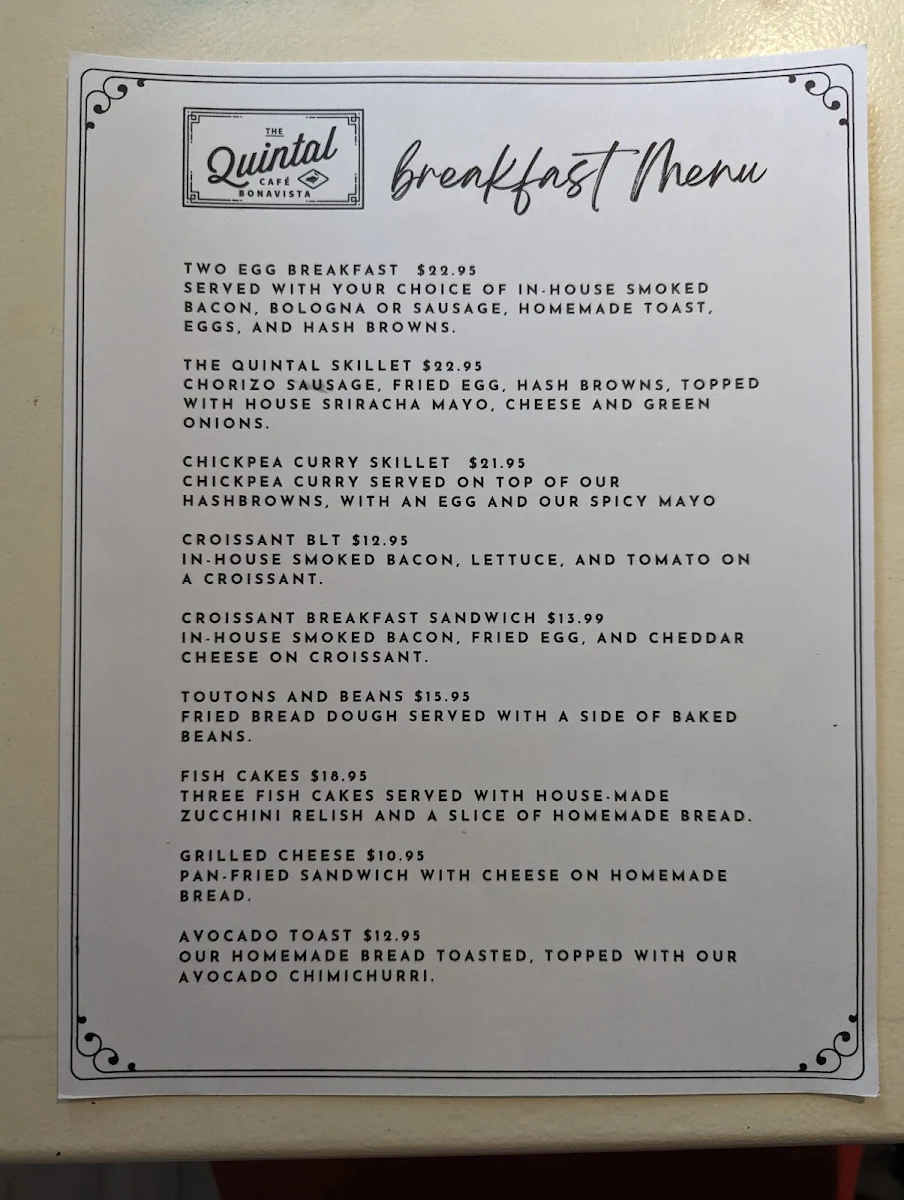 THE
Quintal
CAFÉ
BONAVISTA
breakfast Menu
TWO EGG BREAKFAST $22.95
SERVED WITH YOUR CHOICE OF IN-HOUSE SMOKED
BACON, BOLOGNA OR SAUSAGE, HOMEMADE TOAST,
EGGS, AND HASH BROWNS.
THE QUINTAL SKILLET $22.95
CHORIZO SAUSAGE, FRIED EGG, HASH BROWNS, TOPPED
WITH HOUSE SRIRACHA MAYO, CHEESE AND GREEN
ONIONS.
CHICKPEA CURRY SKILLET $21.95
CHICKPEA CURRY SERVED ON TOP OF OUR
HASHBROWNS, WITH AN EGG AND OUR SPICY MAYO
CROISSANT BLT $12.95
IN-HOUSE SMOKED BACON, LETTUCE, AND TOMATO ON
A CROISSANT.
CROISSANT BREAKFAST SANDWICH $13.99
IN-HOUSE SMOKED BACON, FRIED EGG, AND CHEDDAR
CHEESE ON CROISSANT.
TOUTONS AND BEANS $15.95
FRIED BREAD DOUGH SERVED WITH A SIDE OF BAKED
BEANS.
FISH CAKES $18.95
THREE FISH CAKES SERVED WITH HOUSE-MADE
ZUCCHINI RELISH AND A SLICE OF HOMEMADE BREAD.
GRILLED CHEESE $10.95
PAN-FRIED SANDWICH WITH CHEESE ON HOMEMADE
BREAD.
AVOCADO TOAST $12.95
OUR HOMEMADE BREAD TOASTED, TOPPED WITH OUR
AVOCADO CHIMICHURRI.